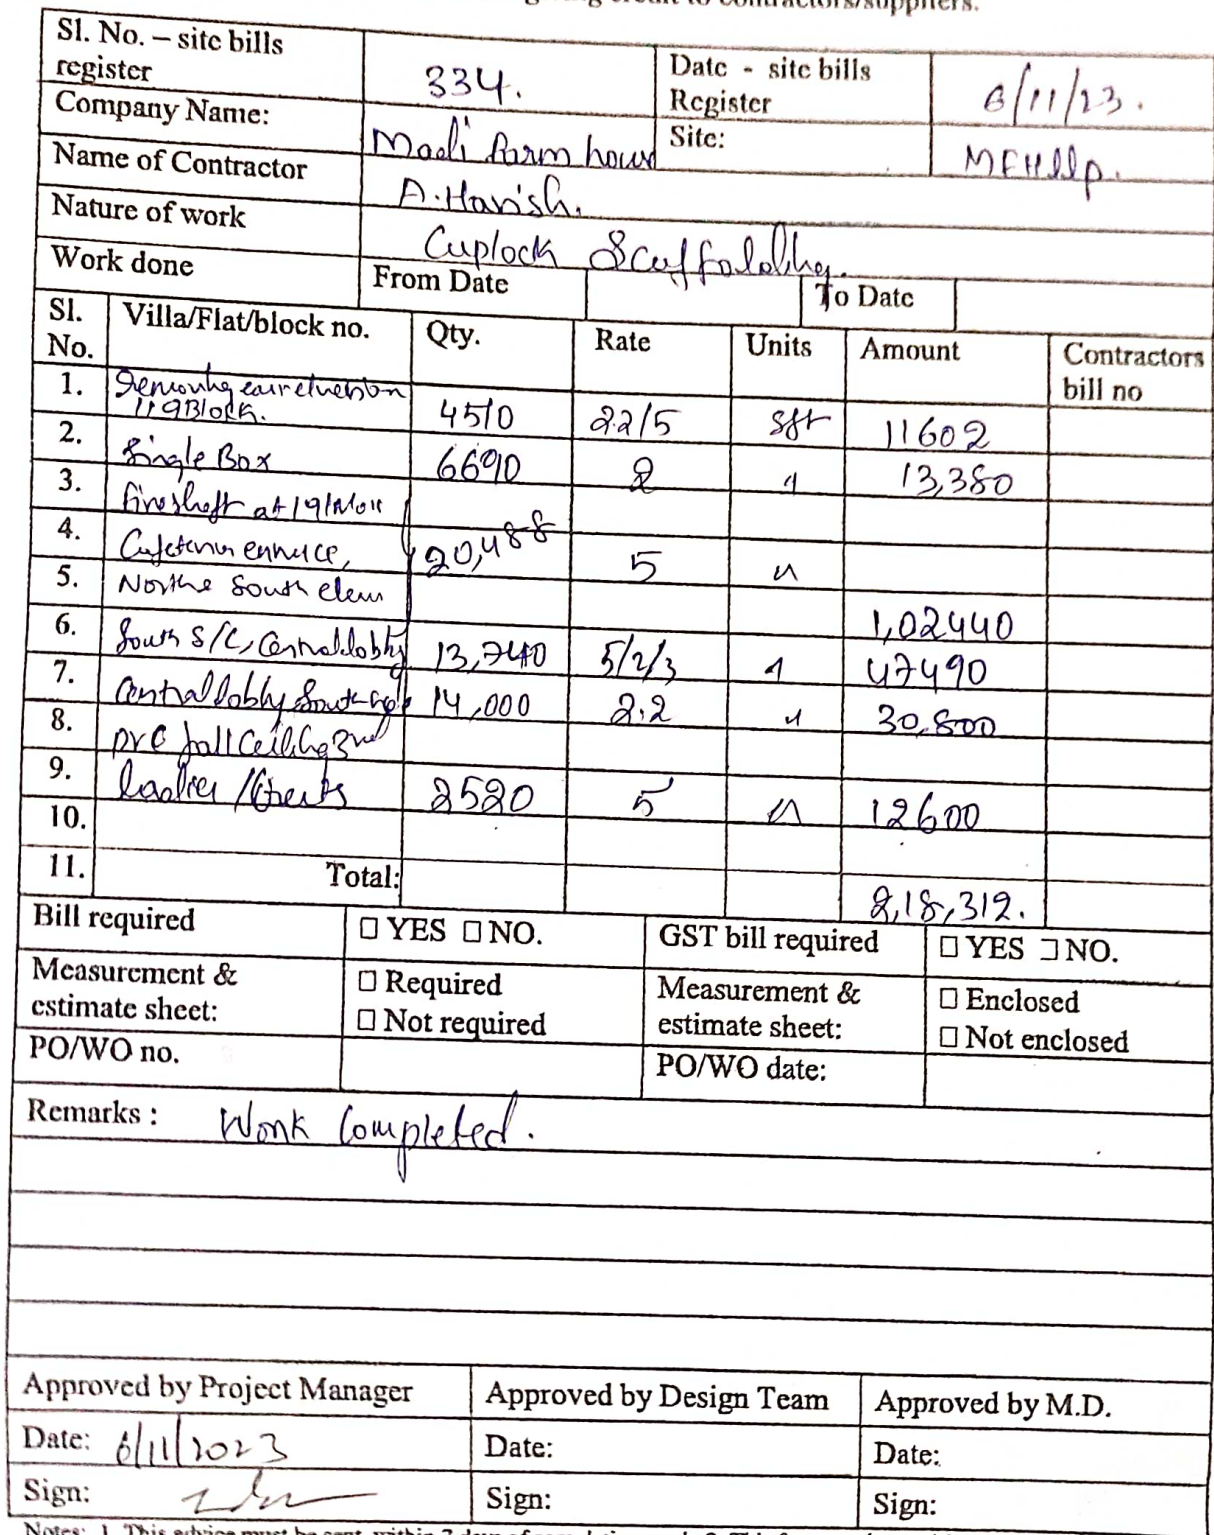 Sl. No. – site bills register 334. Date - site bills Register 6/11/23.
Company Name: Modi Farm house Site: MFHllp.
Name of Contractor A. Harish.
Nature of work Cuplock Scaffolding.
Work done From Date To Date
Sl. No. Villa/Flat/block no. Qty. Rate Units Amount Contractors bill no
1. 119 Block. 4510 2.2/5 sft 11602
2. Single Box 6690 2 " 13,380
3. fireshaft at 191
4. 20,488 5 "
5. North South 1,02440
6. South S/C, Central lobby 13,740 5/2/3 " 47490
7. Central lobby South 14,000 2.2 " 30,800
8. PVC fall Ceiling 3rd
9. ladies /Gents 2520 5 " 12600
10.
11. Total: 2,18,312.
Bill required ☐ YES ☐ NO. GST bill required ☐ YES ☐ NO.
Measurement & estimate sheet: ☐ Required ☐ Not required Measurement & estimate sheet: ☐ Enclosed ☐ Not enclosed
PO/WO no. PO/WO date:
Remarks : Work Completed.
Approved by Project Manager Approved by Design Team Approved by M.D.
Date: 6/11/2023 Date: Date:
Sign: Sign: Sign: